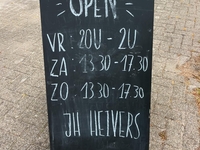 OPEN
VR: 20U - 2U
ZA: 13.30 - 17.30
ZO: 13.30 - 17.30
JH HEIVERS